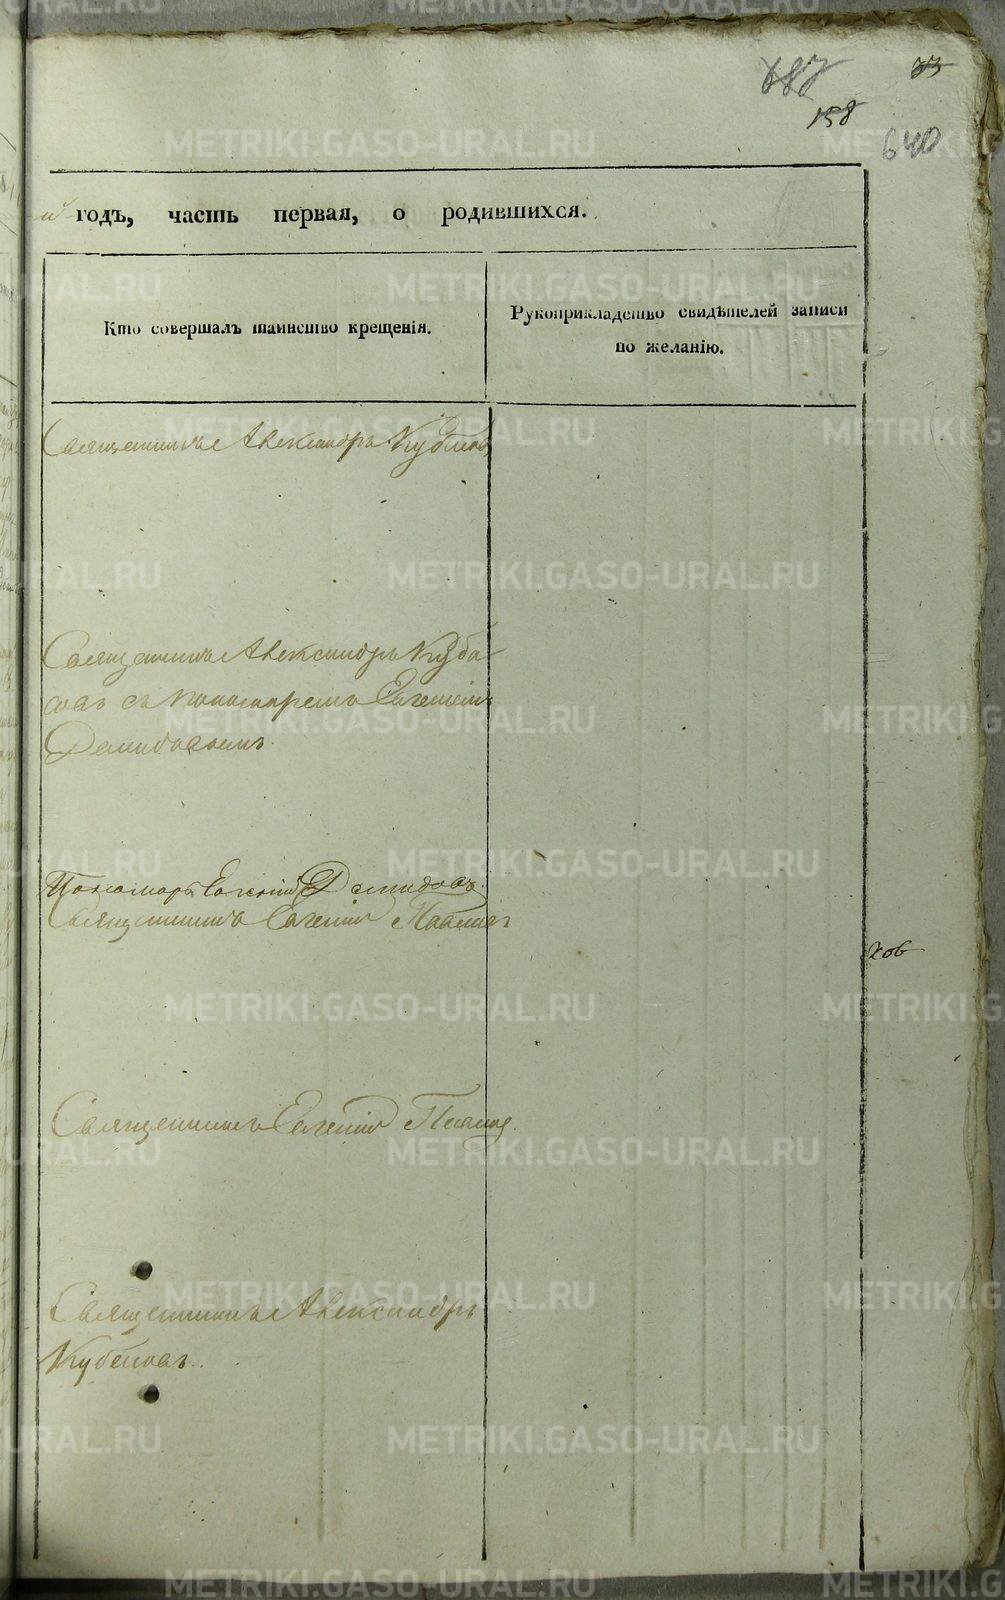 687
33
158
640
й годъ, часть первая, о родившихся.
Кто совершалъ таинство крещенія.
Рукоприкладство свидѣтелей записи
по желанію.
Священникъ Александръ
Священникъ Александръ Куба-
совъ съ пономаремъ Евгеніемъ
Демидовымъ.
Пономарь Евгеній Демидовъ.
Священникъ Евгеній
хов
Священникъ Евгеній
Священникъ Александръ
METRIKI.GASO-URAL.RU